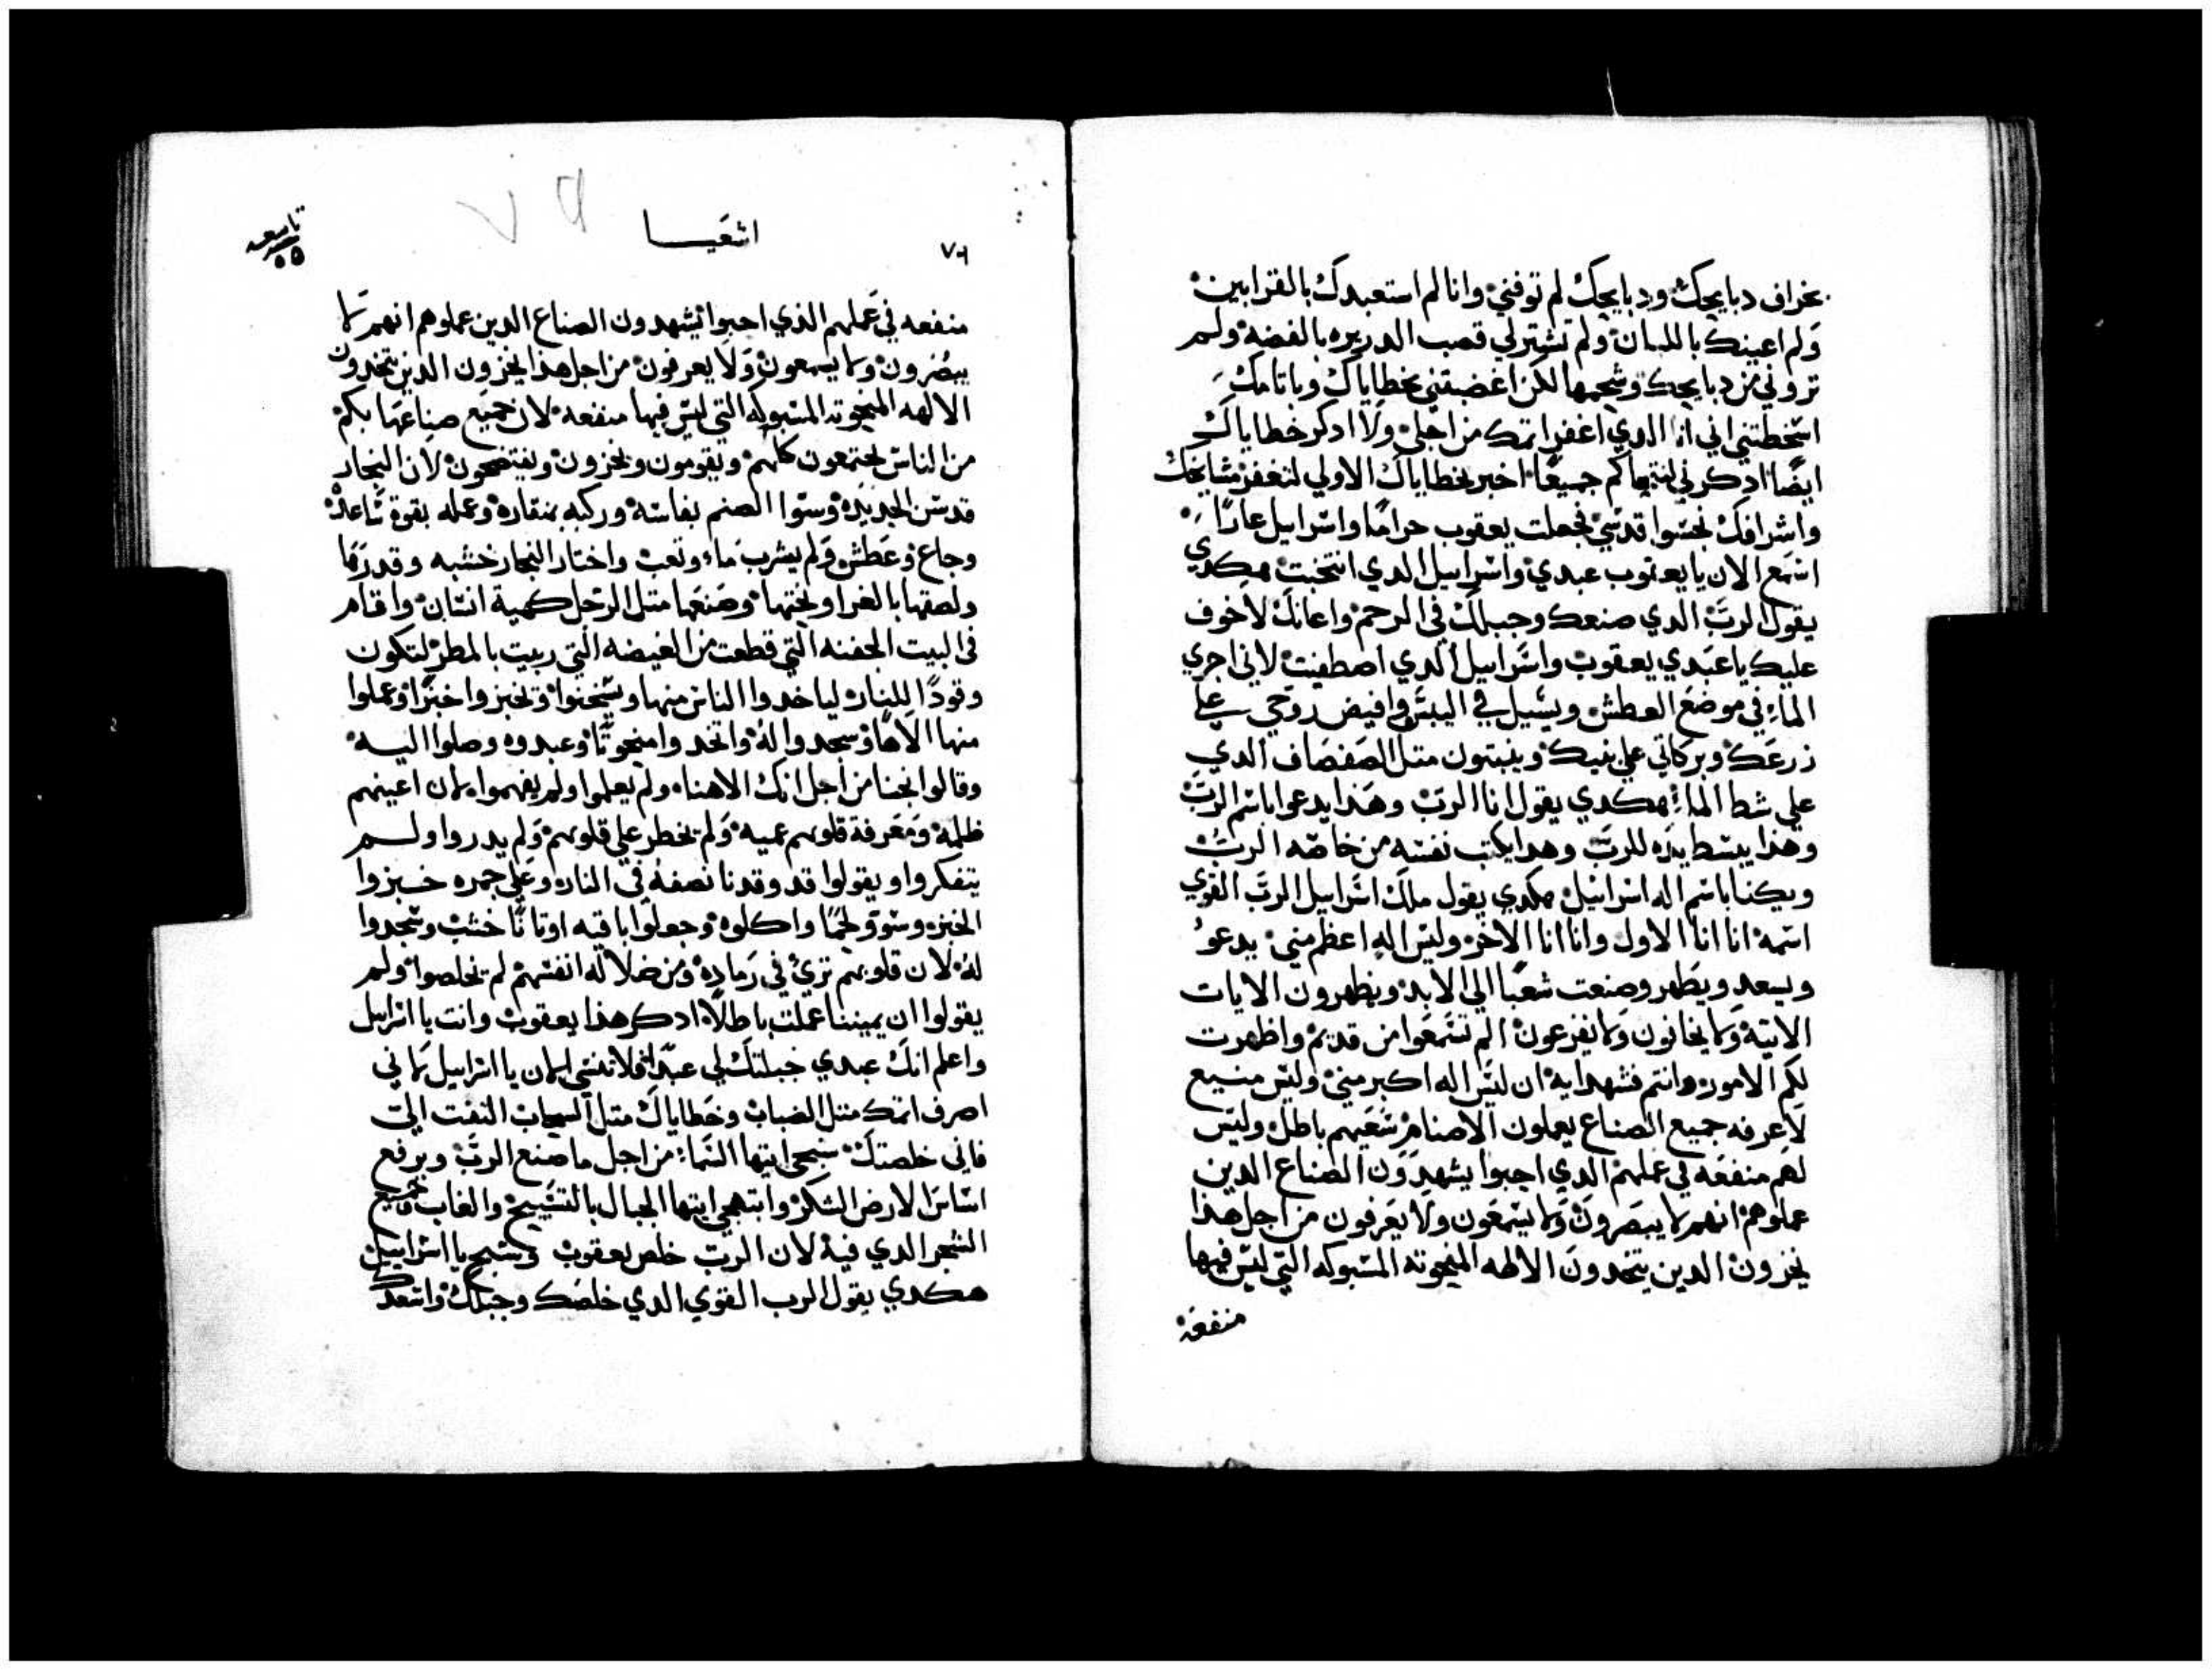 بخراف دبايحك ودبايحك لم توفني وانا لم استعبدك بالقرابين
ولم اعينك باللبان ولم تشتر لي قصب الدريره بالفضه ولم
تروني من دبايحك وشحمها لكن اغضبتني بخطاياك وباتامك
اسخطتني اني انا الدي اغفر اتمك من اجلي ولا ادكر خطاياك
ايضا ادكرني لنتحاكم جميعا اخبر بخطاياك الاولي لتغفر مشايخك
واشرافك نجسوا قدسي فجعلت يعقوب حراما واسراييل عارا
اسمع الان يا يعقوب عبدي واسراييل الدي انتخبت هكدي
يقول الرب الدي صنعك وجبلك في الرحم واعانك لا خوف
عليك يا عبدي يعقوب واسراييل الدي اصطفيت لاني اجري
الماء في موضع العطش ويسيل في اليبس وافيض روحي علي
زرعك وبركاتي علي بنيك وينبتون متل الصفصاف الدي
علي شط الماء هكدي يقول انا الرب وهذا يدعوا باسم الرب
وهذا يبسط يده للرب وهدا يكتب نفسه من خاصه الرب
ويكنا باسم اله اسراييل هكدي يقول ملك اسراييل الرب القوي
اسمه انا انا الاول وانا انا الاخر وليس اله اعظم مني يدعو
ويسعد ويظهر وصنعت شعبا الي الابد ويظهرون الايات
الاتيه ولا يخافون ولا يفزعون الم تسمعوا من قديم واظهرت
لكم الامور وانتم فشهدا به ان ليس اله اكبر مني وليس منيع
لا عرفه جميع الصناع يعملون الاصنام سعيهم باطل وليس
لهم منفعه في عملهم الدي احبوا يشهدون الصناع الدين
عملوهم انهم لا يبصرون ولا يسمعون ولا يعرفون من اجل هذا
يخزون الدين يتخدون الالهه المنحوته المسبوكه التي ليس فيها
منفعه
٧٦
اشعيا
تاسعه
منفعه في عملهم الذي احبوا يشهدون الصناع الدين عملوهم انهم لا
يبصرون ولا يسمعون ولا يعرفون من اجل هذا يخزون الدين يتخدون
الالهه المنحوته المسبوكه التي ليس فيها منفعه لان جميع صناعها بكم
من الناس يجتمعون كلهم ويقومون ويخزون ويفتضحون لان النجار
قدس الحديده وسوا الصنم بفاسه وركبه بمنقاره وعمله بقوة ساعده
وجاع وعطش ولم يشرب ماء وتعب واختار النجار خشبه وقدرها
ولصقها بالغرا ونحتها وصنعها متل الرجل كهية انسان واقام
في البيت الجفنه التي قطعت من الغيضه التي ربيت بالمطر لتكون
وقودا للنار لياخدوا الناس منها ويسخنوا وتخبزوا خبزا وعملوا
منها الاها وسجدوا له واتخدوا منحوتا وعبدوه وصلوا اليه
وقالوا نجنا من اجل انك الاهنا ولم يعلموا ولم يفهموا لان اعينهم
ظلمه ومعرفة قلوبهم عميه ولم يخطر علي قلوبهم ولم يدروا ولم
يتفكروا ويقولوا قد وقدنا نصفه في النار وعلي جمره خبزوا
الخبز وسوو لحما واكلوه وجعلوا باقيه اوتانا خشب وسجدوا
له لان قلوبهم تري في رماده ومن ضلاله انفسهم لم تخلصوا ولم
يقولوا ان يميننا عملت باطلا ادكر هذا يعقوب وانت يا اسراييل
واعلم انك عبدي جبلتك لي عبدا فلا تنسي الان يا اسراييل لاني
اصرف اتمك متل الضباب وخطاياك متل السحاب التفت الي
فاني خلصتك سبحي ايتها السماء من اجل ما صنع الرب ويرفع
اساس الارض الشكر وابتهجي ايتها الجبال بالتسبيح والغاب جميع
الشجر الدي فيه لان الرب خلص يعقوب وسبح يا اسراييل
هكدي يقول الرب القوي الدي خلصك وجبلك واسعدك